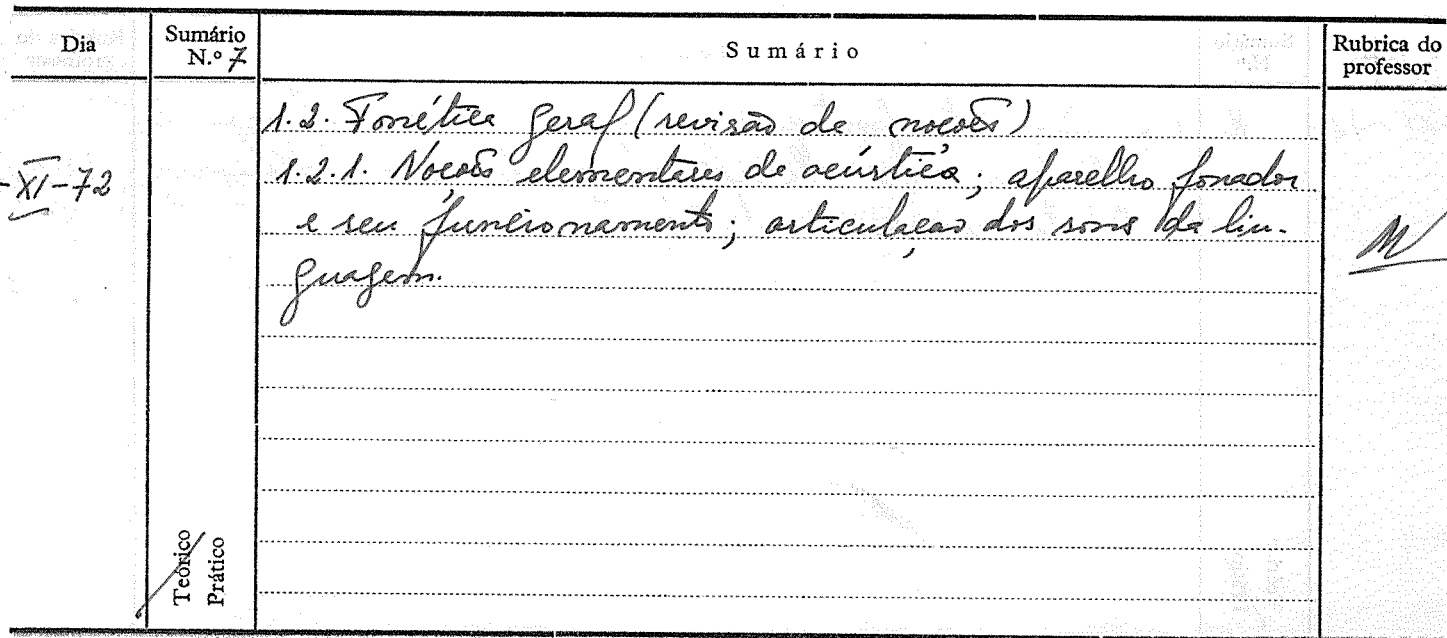 Dia
Sumário
N.º 7
Sumário
Rubrica do
professor
-XI-72
1.2. Fonética geral (revisão de noções)
1.2.1. Noções elementares de acústica; aparelho fonador
e seu funcionamento; articulação dos sons da lin-
guagem.
Teórico
Prático